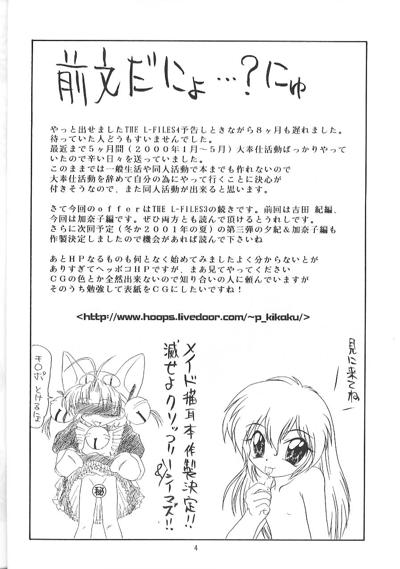 前文だにょ…?にゅ
やっと出せましたTHE L-FILES4予告しときながら8ヶ月も遅れました。
待っていた人どうもすいませんでした。
最近まで5ヶ月間(2000年1月~5月)大奉仕活動ばっかりやって
いたので辛い日々を送っていました。
このままでは一般生活や同人活動で本までも作れないので
大奉仕活動を辞めて自分の為にやって行くことに決心が
付きそうなので、また同人活動が出来ると思います。
さて今回のofferはTHE L-FILES3の続きです。前回は吉田 紀編、
今回は加奈子編です。ぜひ両方とも読んで頂けるとうれしです。
さらに次回予定(冬か2001年の夏)の第三弾の夕紀&加奈子編も
作製決定しましたので機会があれば読んで下さいね
あとHPなるものも何となく始めてみましたよく分からないとが
ありすぎてヘッポコHPですが、まあ見てやってください
CGの色とか全然出来ないので知り合いの人に頼んでいますが
そのうち勉強して表紙をCGにしたいですね!
<http://www.hoops.livedoor.com/~p_kikaku/>
見に来てね
メイド猫耳本作製決定!!
滅せよクソッアリーシイマズ!!
㊙
4